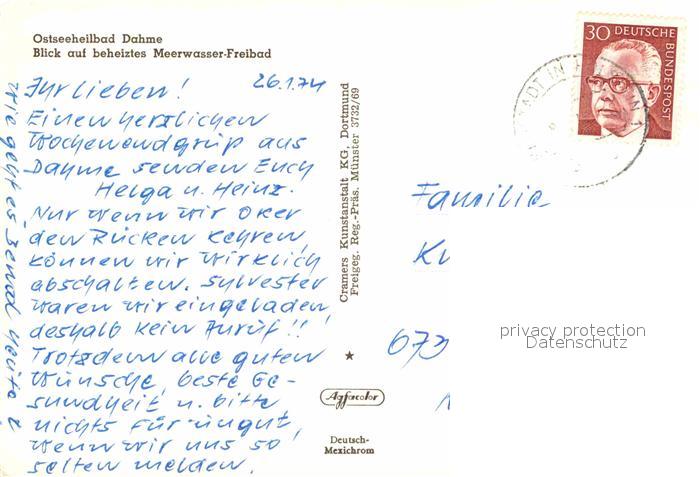 Ostseeheilbad Dahme
Blick auf beheiztes Meerwasser-Freibad
26.1.74
Ihr Lieben!
Einen herzlichen
Wochenendgruß aus
Dahme senden Euch
Helga u. Heinz.
Nur wenn wir OKer
den Rücken kehren,
können wir wirklich
abschalten. Sylvester
waren wir eingeladen,
deshalb kein Anruf!!
Trotzdem alle guten
Wünsche, beste Ge-
sundheit u. bitte
nichts für ungut,
wenn wir uns so
selten melden.
Wie geht es
Cramers Kunstanstalt KG, Dortmund
Freigeg. Reg.-Präs. Münster 3732/69
Agfacolor
Deutsch-
Mexichrom
30 DEUTSCHE
BUNDESPOST
Familie
673
privacy protection
Datenschutz